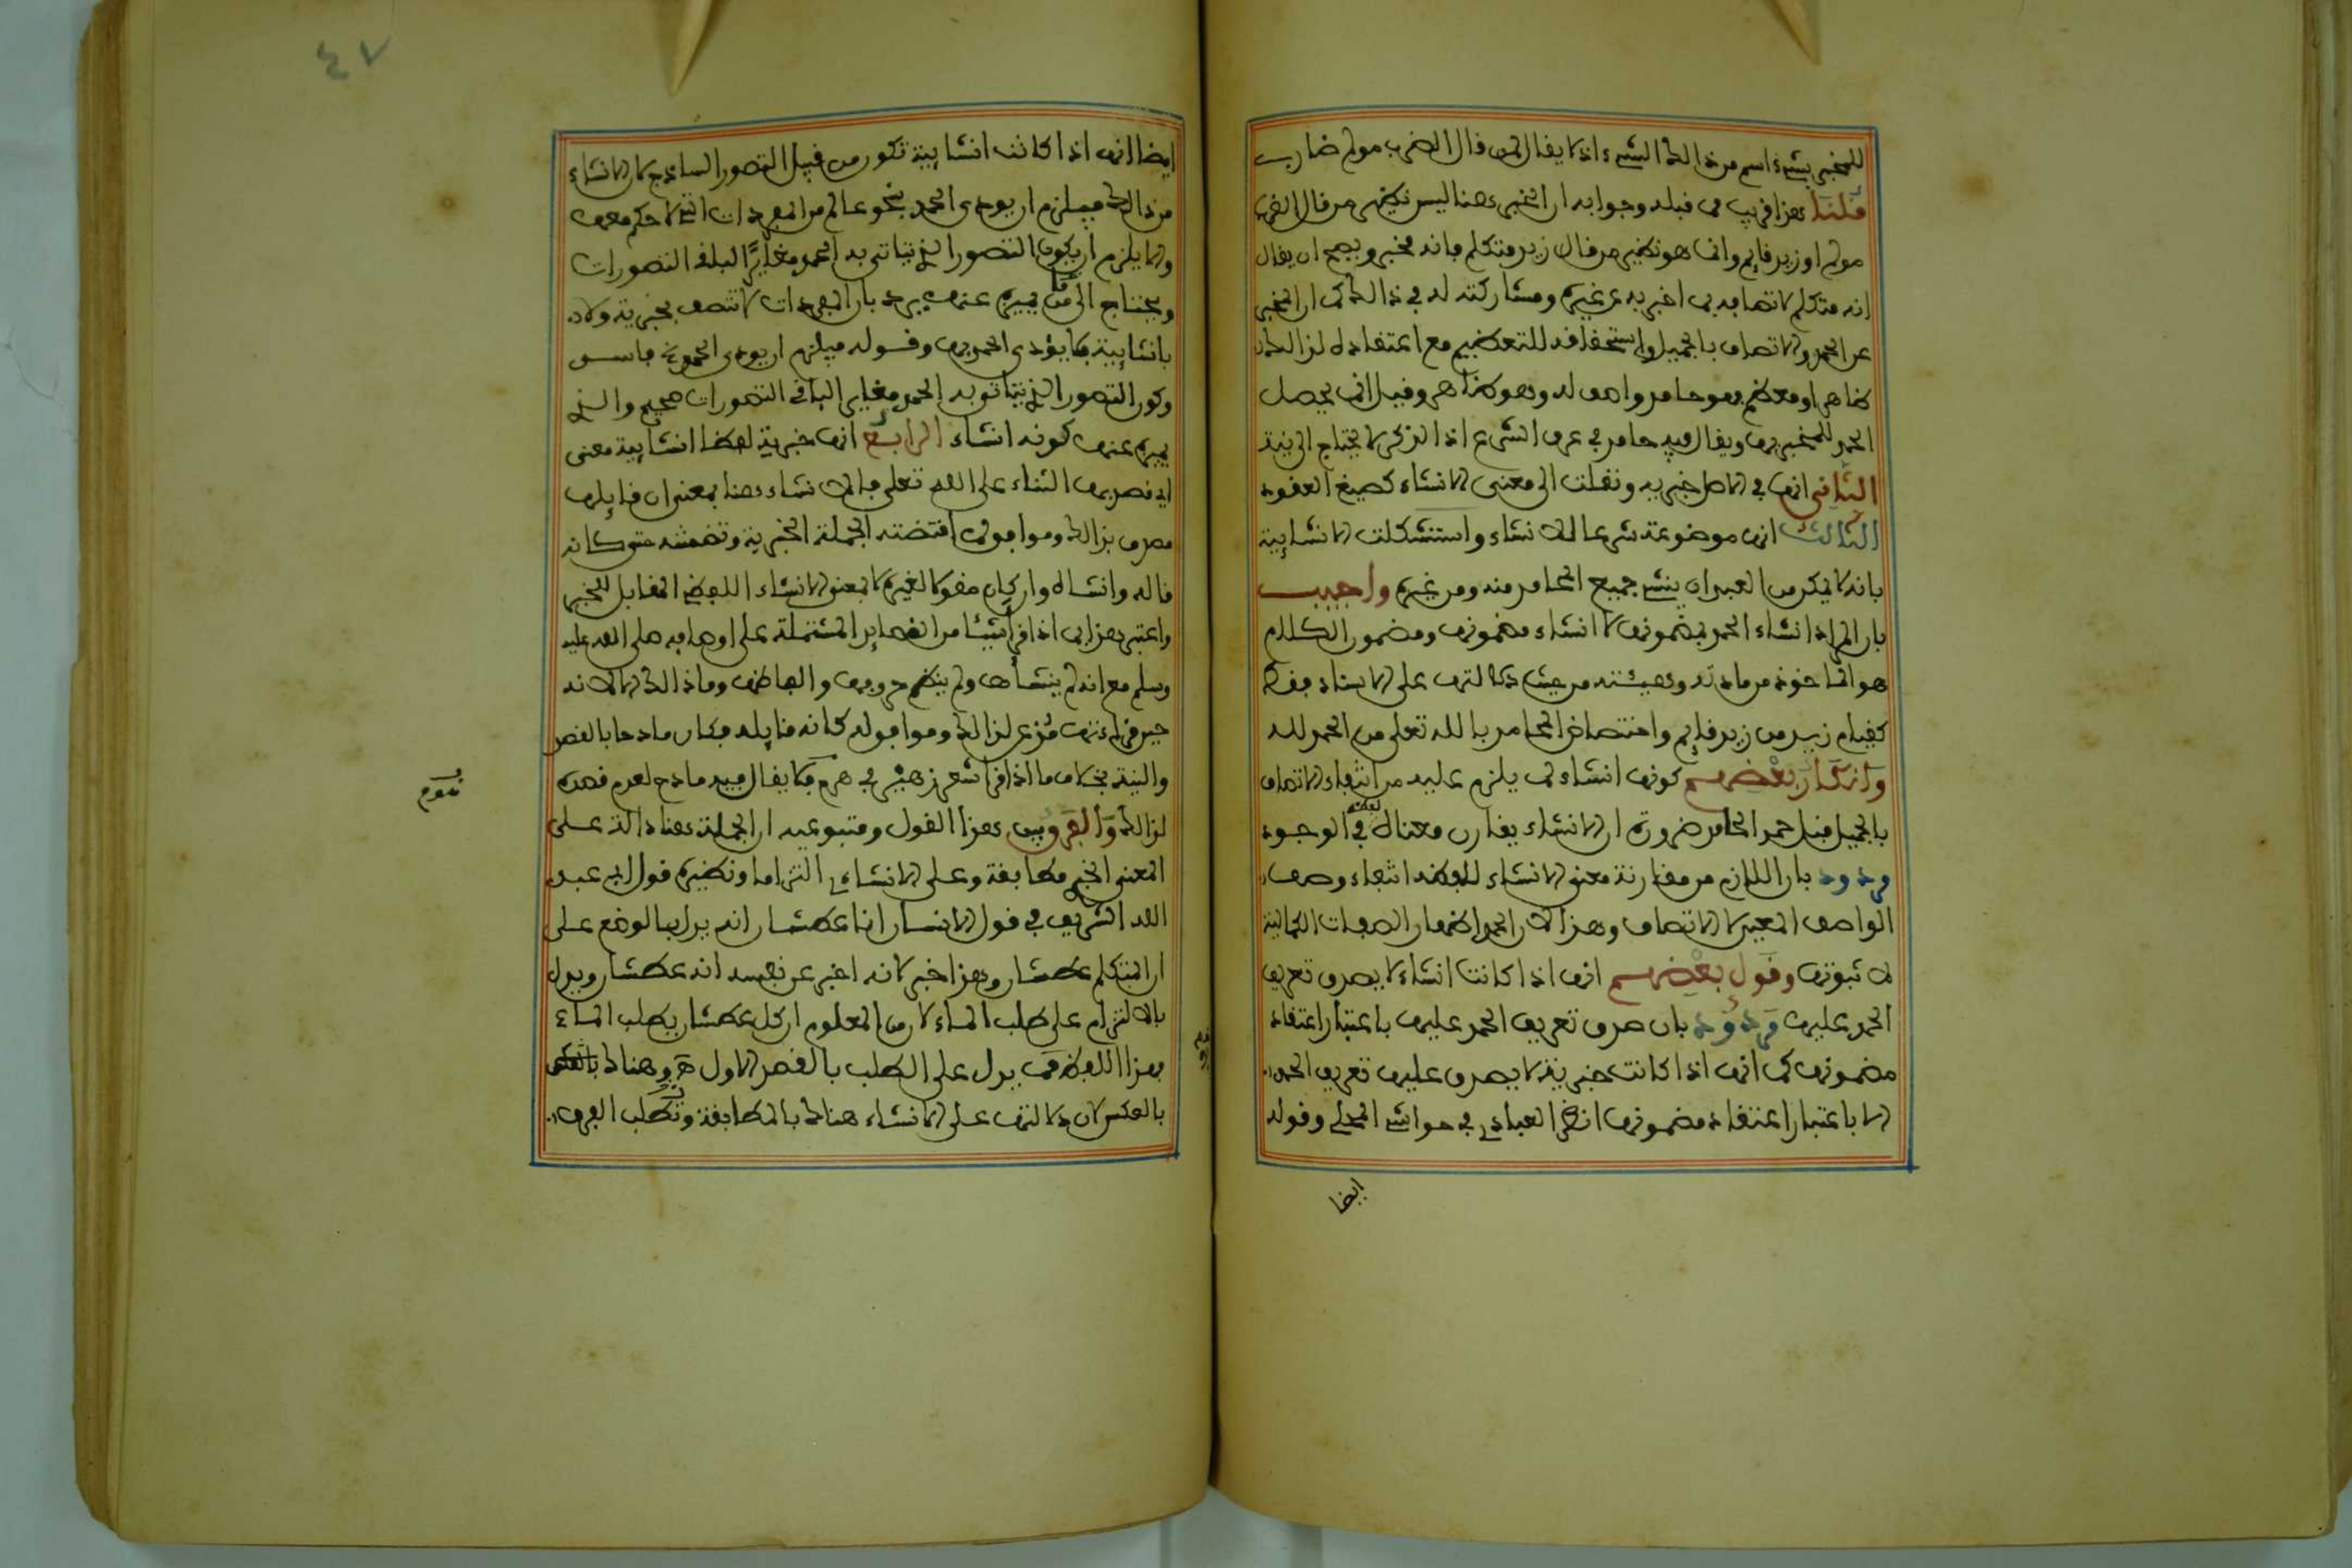 للمخبر بشيء اسم من ذالك الشيء اذ لا يقال لمن قال الضرب مولم ضارب
قلنا هذا قريب مما قبله وجوابه ان الخبر هنا ليس نظير من قال الضرب
مولم او زيد قايم وانما هو نظير من قال زيد متكلم فانه مخبر ويصح ان يقال
انه متكلم لاتصافه بما اخبر به عن غيره ومشاركته له في ذالك لان المخبر
عن الحمد والاتصاف بالجميل واستحقاقه للتعظيم مع اعتقاده لذالك
ظاهرا ومعظم فهو حامد واصف له وهو ظاهر وقيل انما يحصل
الحمد للمخبر بها ويقال فيه حامد في عرف الشرع اذ الذكر لا يحتاج الى نية
الثاني انها في الاصل خبرية ونقلت الى معنى الانشاء كصيغ العقود
الثالث انها موضوعة شرعا للانشاء واستشكلت الانشاىية
بانه لا يمكن العبد ان ينشئ جميع المحامد منه ومن غيره واجيب
بان المراد انشاء الحمد بمضمونها لا انشاء مضمونها ومضمون الكلام
هو الماخوذ من مادته وهيئته من حيث دلالتها على الاسناد فقط
كقيام زيد من زيد قايم واختصاص المحامد بالله تعلى من الحمد لله
وانكار بعضهم كونها انشاء لما يلزم عليه من انتفاء الاتصاف
بالجميل قبل حمد الحامد ضرورة ان الانشاء يقارن معناه لفظه في الوجود
مردود بان اللازم من مقارنة معنى الانشاء للفظه انتفاء وصف
الواصف المعين لا الاتصاف وهذا لان الحمد اظهار الصفات الكمالية
لا ثبوتها وقول بعضهم انها اذا كانت انشاء لا يصدق تعريف
الحمد عليها مردود بان صدق تعريف الحمد عليها باعتبار اعتقاد
مضمونها كما انها اذا كانت خبرية لا يصدق عليها تعريف الحمد
الا باعتبار اعتقاد مضمونها انظر العبادي في حواشي المحلي وقوله
ايضا
٤٧
ايضا انها اذا كانت انشاىية تكون من قبيل التصور الساذج لان الانشاء
من ذالك فيلزم ان يودى الحمد بنحو عالم من المفردات التي لا حكم معها
والا يلزم ان يكون التصور الذي يتاتى به الحمد مغايرا لباقي التصورات
ويحتاج الى ما يميزه عنها يرد بان المفردات لا تتصف بخبرية ولا
بانشاىية فلا يؤدى الحمد بها وقوله فيلزم ان يودى الحمد الخ فاسد
وكون التصور الذي يتاتى به الحمد مغاير الباقي التصورات صحيح والذي
يميزه عنها كونه انشاء الرابع انها خبرية لفظا انشاىية معنى
اي قصد بها الثناء على الله تعلى فالانشاء هنا بمعنى ان قايلها
مصدق بذالك وموافق لما اقتضته الجملة الخبرية وتضمنته حتى كانه
قاله وانشاه وان كان مقولا لغيره لا بمعنى الانشاء اللفظي المقابل للخبر
واعتبر هذا بما اذا قرات شيئا من القصايد المشتملة على اوصافه صلى الله عليه
وسلم مع انه لم ينشاها ولم ينظم حروفها والفاظها وما ذالك الا لانه
حين قراءتها مذعن لذالك وموافق له كانه قايله فكان مادحا بالقصد
والنية بخلاف ما اذا قرا شعر زهير في هرم فلا يقال فيه مادح لعدم قصده
هرم
لذالك والفرق بين هذا القول ومتبوعيه ان الجملة هنا دالة على
المعنى الخبري مطابقة وعلى الانشاءي التزاما ونظيره قول ابي عبد
الله الشريف في قول الانسان انا عطشان انه يدل بالوضع على
ان المتكلم عطشان وهذا خبر لانه اخبر عن نفسه انه عطشان ويدل
بالالتزام على طلب الماء لان من المعلوم ان كل عطشان يطلب الماء
فهذا اللفظ يدل على الطلب بالقصد الاول وهناك
بالعكس لان دلالتها على الانشاء هناك بالمطابقة وتطلب الفرق